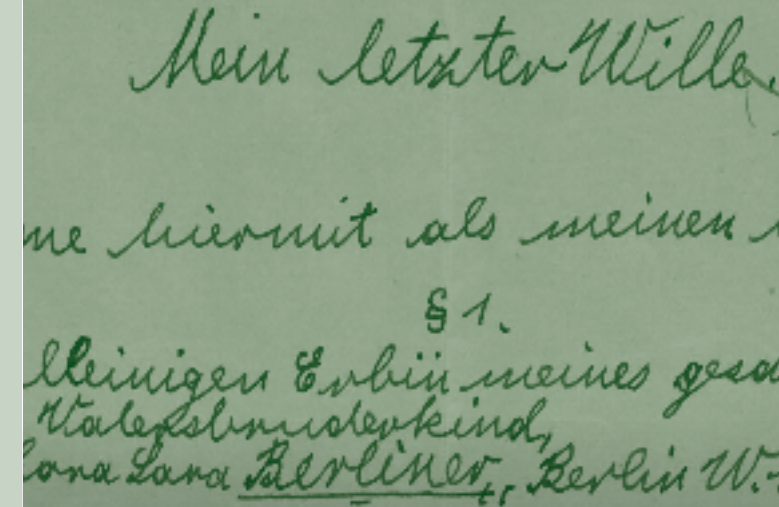 Mein letzter Wille.
me hiermit als meinen
§ 1.
lleinigen Erbin meines gesa
Vatersbruderkind,
lora Sara Berliner, Berlin W.